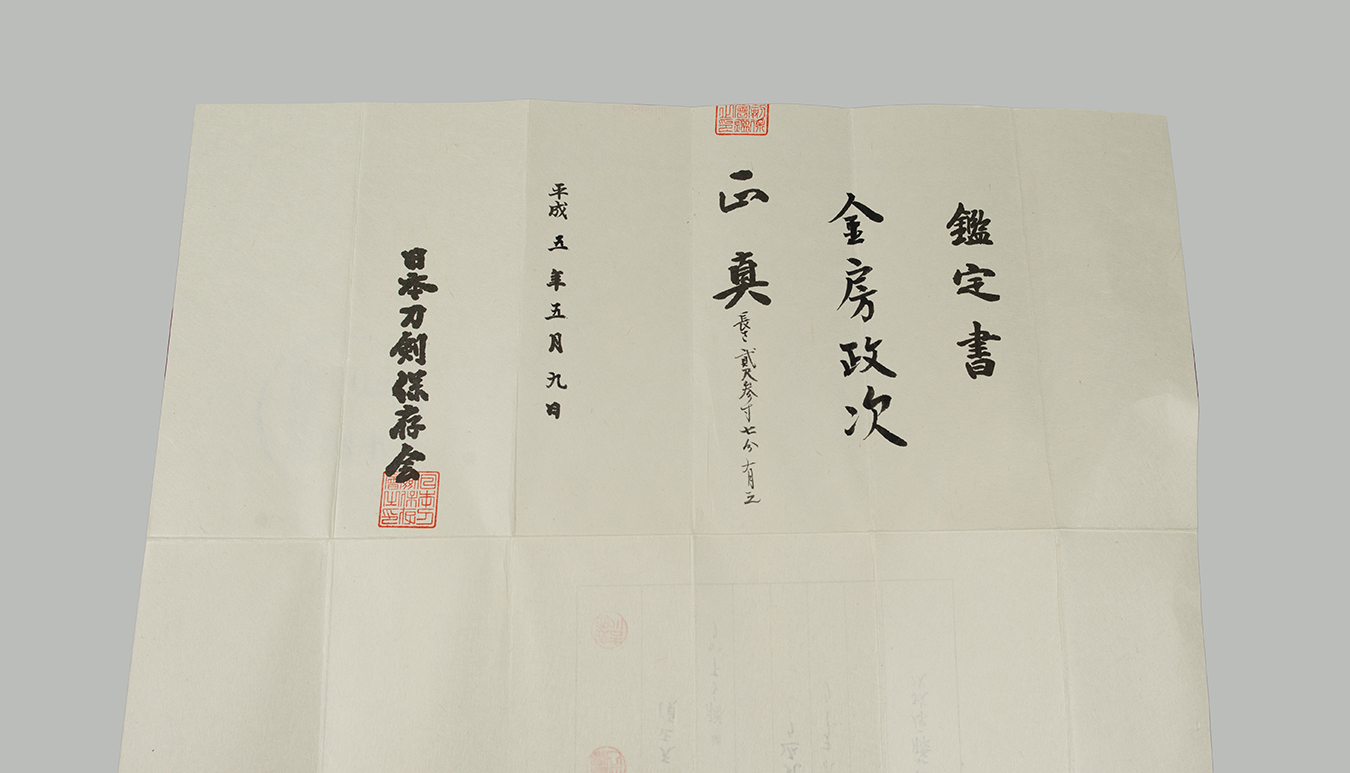 鑑定書
金房政次
正真
長さ貳尺参寸七分有之
平成五年五月九日
日本刀剣保存会